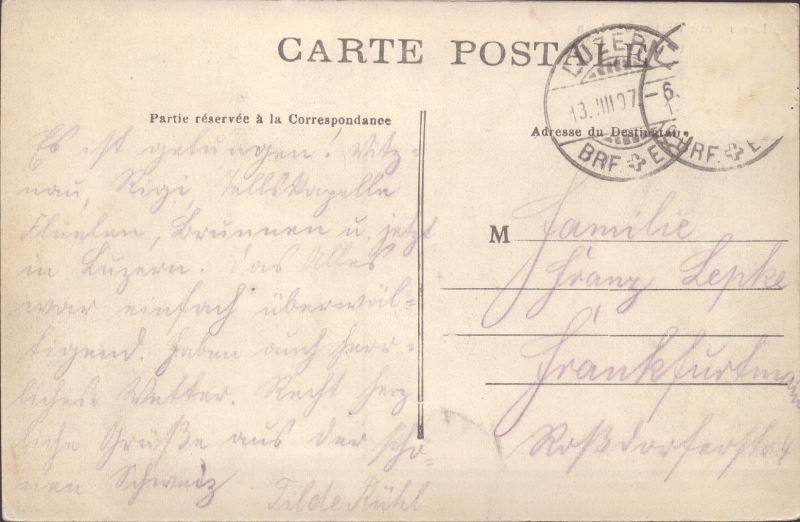 CARTE POSTALE
LUZERN
13.VIII.07.–6.
BRF. E
BRF. E
Partie réservée à la Correspondance
Adresse du Destinatai
Es ist gelungen! Vitz-
nau, Rigi, Tellskapelle
Flüelen, Brunnen u. jetzt
in Luzern. Das Alles
war einfach überwäl-
tigend. Haben auch herr-
liches Wetter. Recht herz
liche Grüße aus der schö-
nen Schweiz
Tilde Rühl
M Familie
Franz Lepke
Frankfurtmain
Roßdorferstr. 4